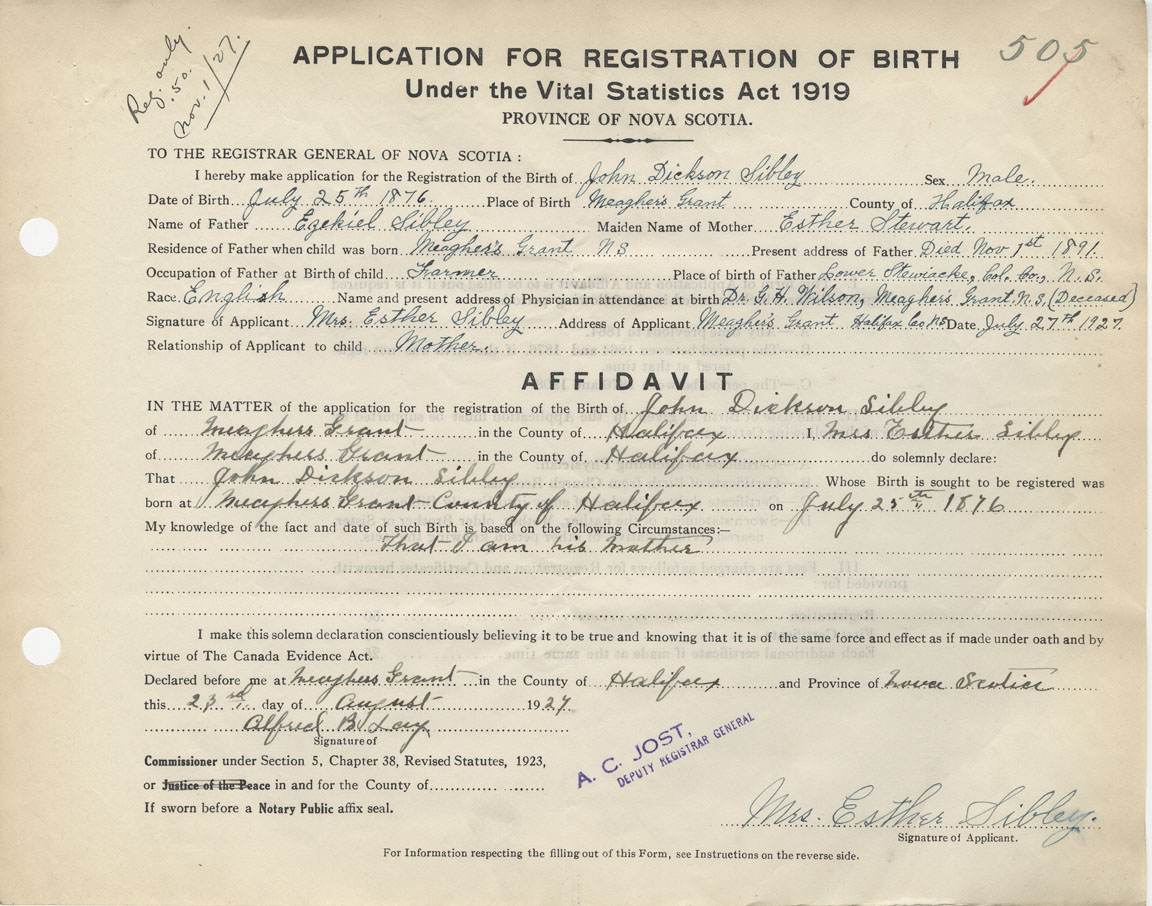 Reg. only.
.50.
Nov. 1/27.
505
APPLICATION FOR REGISTRATION OF BIRTH
Under the Vital Statistics Act 1919
PROVINCE OF NOVA SCOTIA.
TO THE REGISTRAR GENERAL OF NOVA SCOTIA :
I hereby make application for the Registration of the Birth of John Dickson Sibley Sex Male.
Date of Birth July 25th 1876. Place of Birth Meaghers Grant County of Halifax
Name of Father Ezekiel Sibley Maiden Name of Mother Esther Stewart.
Residence of Father when child was born Meagher's Grant NS Present address of Father Died Nov. 1st 1891.
Occupation of Father at Birth of child Farmer Place of birth of Father Lower Stewiacke, Col. Co., N.S.
Race. English Name and present address of Physician in attendance at birth Dr. G. H. Wilson, Meagher's Grant N.S. (Deceased)
Signature of Applicant Mrs. Esther Sibley Address of Applicant Meagher's Grant Halifax Co NS Date July 27th 1927.
Relationship of Applicant to child Mother.
AFFIDAVIT
IN THE MATTER of the application for the registration of the Birth of John Dickson Sibley
of Meaghers Grant in the County of Halifax I, Mrs Esther Sibley
of Meaghers Grant in the County of Halifax do solemnly declare:
That John Dickson Sibley Whose Birth is sought to be registered was
born at Meaghers Grant County of Halifax on July 25th 1876
My knowledge of the fact and date of such Birth is based on the following Circumstances:—
That I am his mother
I make this solemn declaration conscientiously believing it to be true and knowing that it is of the same force and effect as if made under oath and by
virtue of The Canada Evidence Act.
Declared before me at Meaghers Grant in the County of Halifax and Province of Nova Scotia
this 23rd day of August 1927.
Alfred B. Lay
Signature of
Commissioner under Section 5, Chapter 38, Revised Statutes, 1923,
or Justice of the Peace in and for the County of
If sworn before a Notary Public affix seal.
A. C. JOST,
DEPUTY REGISTRAR GENERAL
Mrs. Esther Sibley.
Signature of Applicant.
For Information respecting the filling out of this Form, see Instructions on the reverse side.